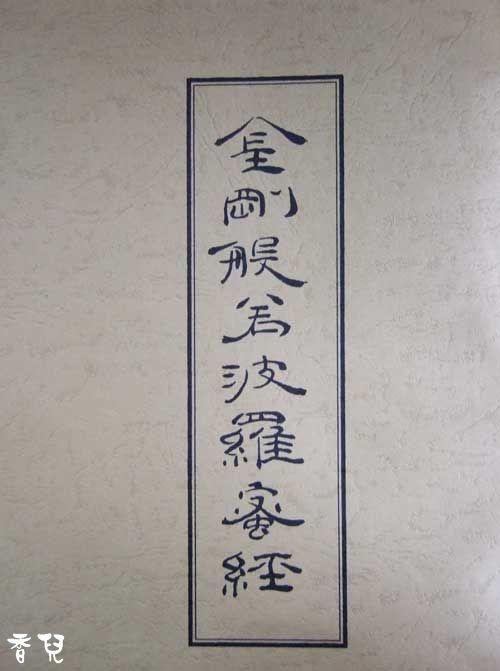 金剛般若波羅蜜經
香兒